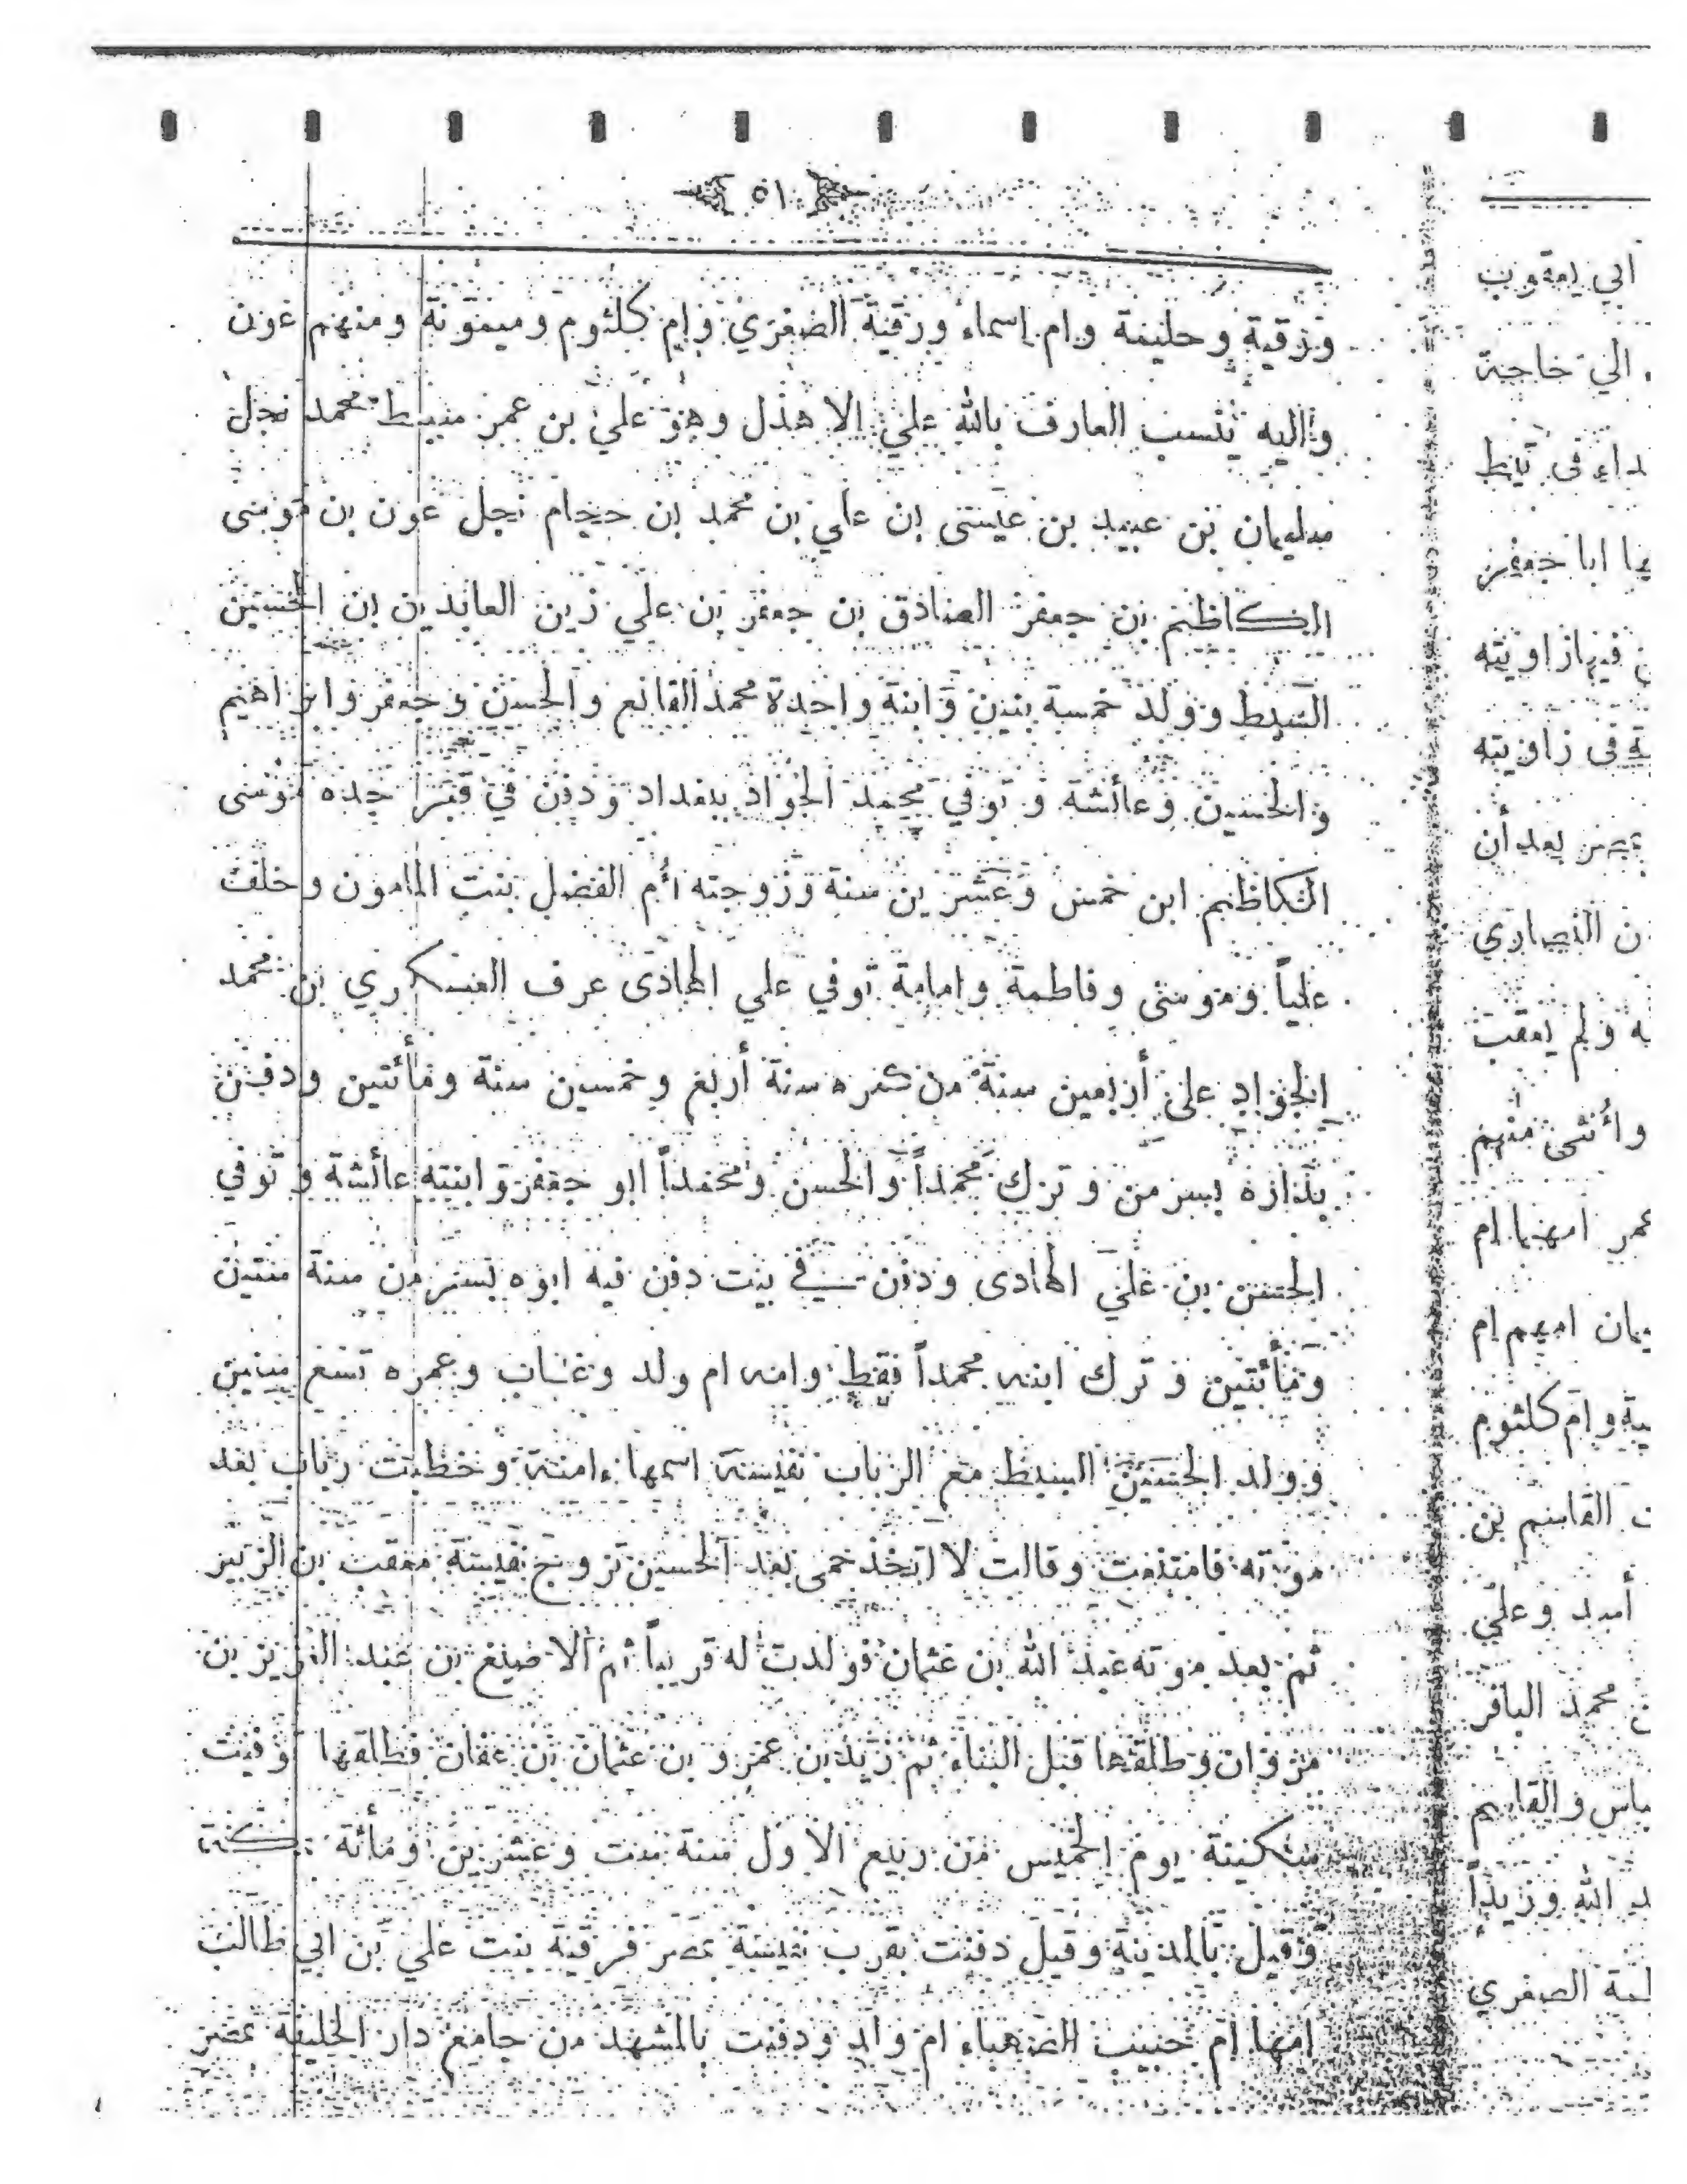 ٥١
ورقية وحليمة وام اسماء ورقية الصغرى وام كلثوم وميمونة ومنهم عون
واليه ينسب العارف بالله علي الاهدل وهو علي بن عمر بن محمد نجل
سليمان بن عبيد بن عيسى بن علي بن محمد بن حمحام نجل عون بن موسى
الكاظم بن جعفر الصادق بن جعفر بن علي زين العابدين بن الحسين
السبط وولد خمسة بنين وابنة واحدة محمد القانع والحسن وجعفر وابراهيم
والحسين وعائشة وتوفي محمد الجواد ببغداد ودفن في قبر جده موسى
الكاظم ابن خمس وعشرين سنة وزوجته أم الفضل بنت المامون وخلف
علياً وموسى وفاطمة وامامة توفي علي الهادى عرف العسكري بن محمد
الجواد على أربعين سنة من عمره سنة أربع وخمسين سنة ومأئتين ودفن
بداره بسر من وترك محمداً والحسن ومحمداً ابو جعفر وابنته عائشة وتوفي
الحسن بن علي الهادى ودفن في بيت دفن فيه ابوه بسر من سنة ستين
ومأئتين وترك ابنه محمداً فقط وامه ام ولد وغاب وعمره تسع سنين
وولد الحسين السبط مع الرباب نفيسة اسمها ءامنة وخطبت رباب بعد
موته فامتنعت وقالت لا اتخذ حمى بعد الحسين تزوج نفيسة مصعب بن الزبير
ثم بعد موته عبد الله بن عثمان فولدت له قريباً ثم الاصبغ بن عبد العزيز بن
مروان وطلقها قبل البناء ثم زيد بن عمرو بن عثمان بن عفان فطلقها توفيت
سكينة يوم الخميس من ربيع الاول سنة ست وعشرين ومأئة بمكة
وقيل بالمدينة وقيل دفنت بقرب نفيسة بمصر فرقية بنت علي بن ابي طالب
امها ام حبيب الصهباء ام ولد ودفنت بالمشهد من جامع دار الخليفة بمصر
ابي يعقوب
الى حاجة
ابا جعفر
فيها زاويته
فى زاويته
بعد أن
النصارى
ولم يعقب
وأنثى منهم
عمر امهما ام
امهم ام
وام كلثوم
القاسم بن
أسد وعلي
محمد الباقر
والقاسم
الله وزيداً
الصغرى